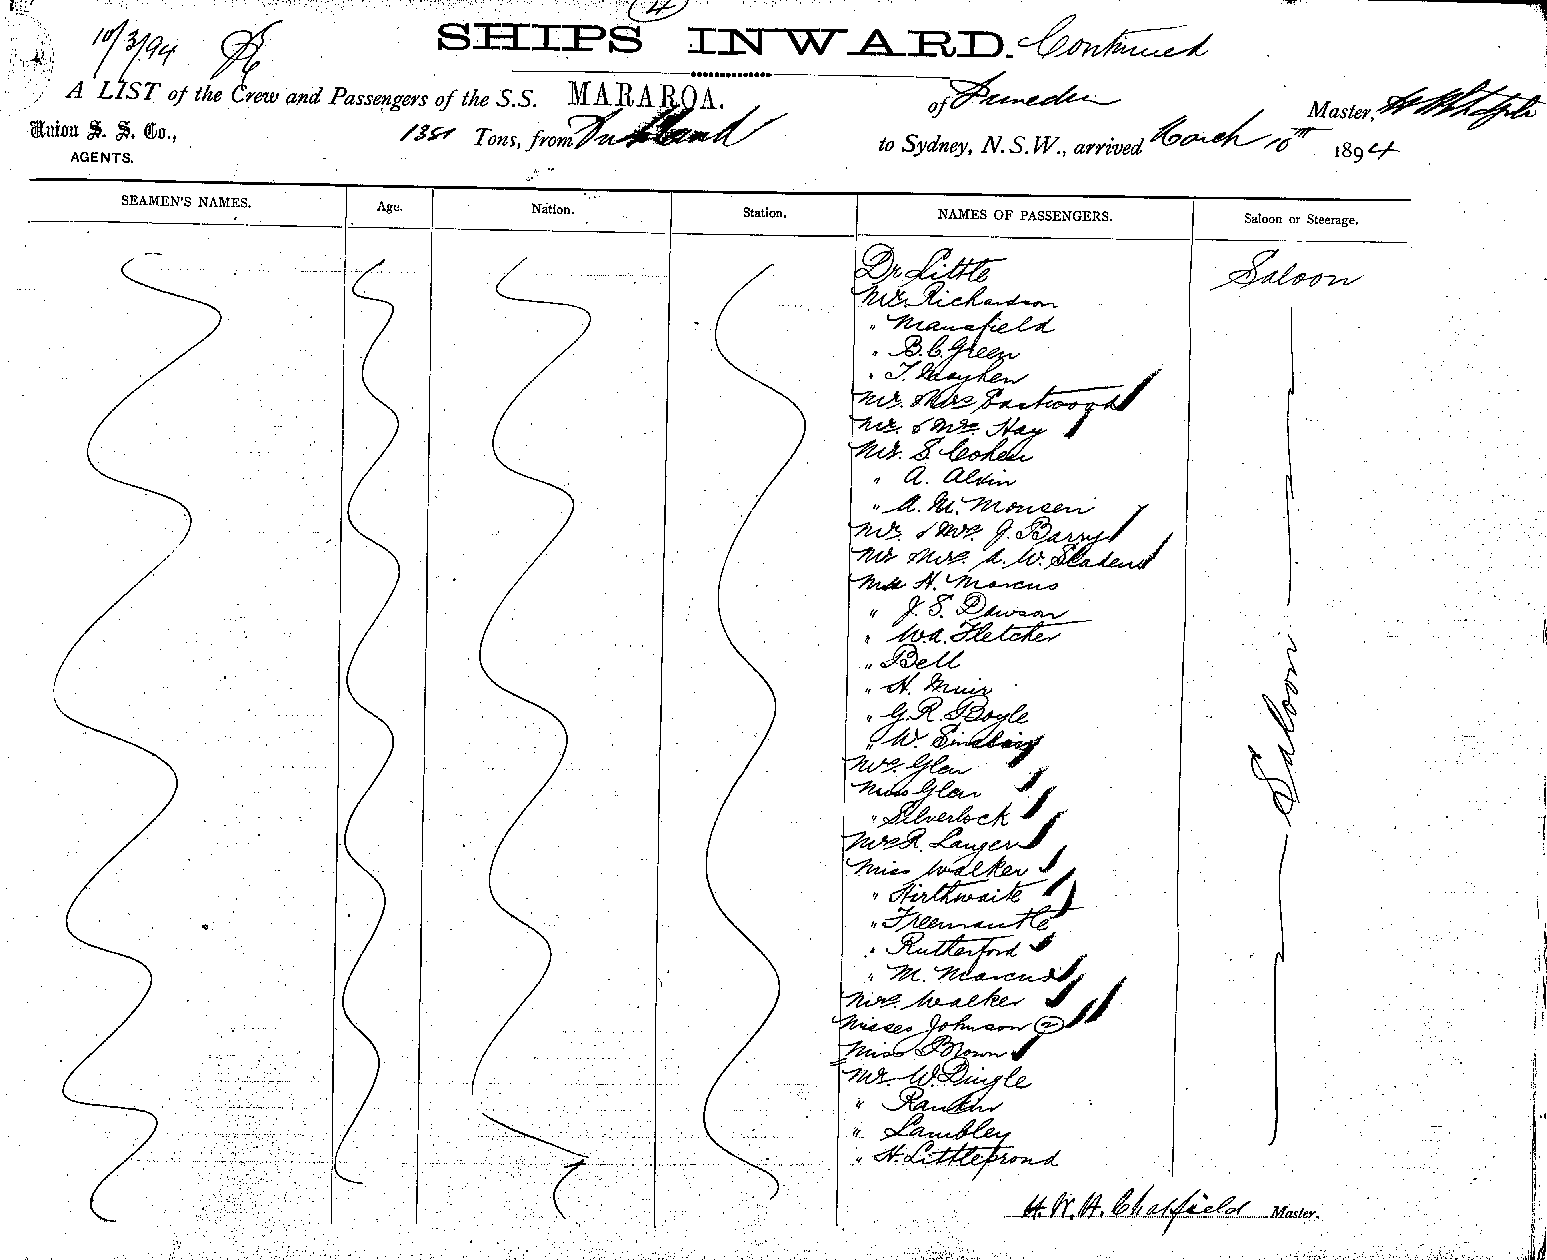 4
10/3/94
SHIPS INWARD. Continued
A LIST of the Crew and Passengers of the S.S. MARAROA. of Dunedin Master,
Union S. S. Co., 1381 Tons, from Auckland to Sydney, N.S.W., arrived March 10th 1894
AGENTS.
SEAMEN'S NAMES. Age. Nation. Station. NAMES OF PASSENGERS. Saloon or Steerage.
Dr Little Saloon
Mr. Richardson
" Mansfield
" B.C. Green
" T. Mayhew
Mr. Mrs Eastwood
Mr. & Mrs. Hay
Mr. S. Cohen
" A. Alvin
" A. M. Monsen
Mr. & Mrs. J. Barry
Mr Mrs. A. W. Sladen
Mr H. Marcus
" J. S. Dawson
" W.A. Fletcher
" Bell
" H. Muir
" G. R. Boyle
" W. Sinclair
Saloon
Mrs. Glen
Miss Glen
" Silverlock
Mrs R. Langer
Miss Walker
" Hirthwaite
" Freemantle
" Rutterford
" M. Marcus
Mrs. Walker
Misses Johnson (2)
Miss Brown
Mr W. Dingle
" Rankin
" Lambley
" H. Littleproud
H. W. H. Chatfield Master.